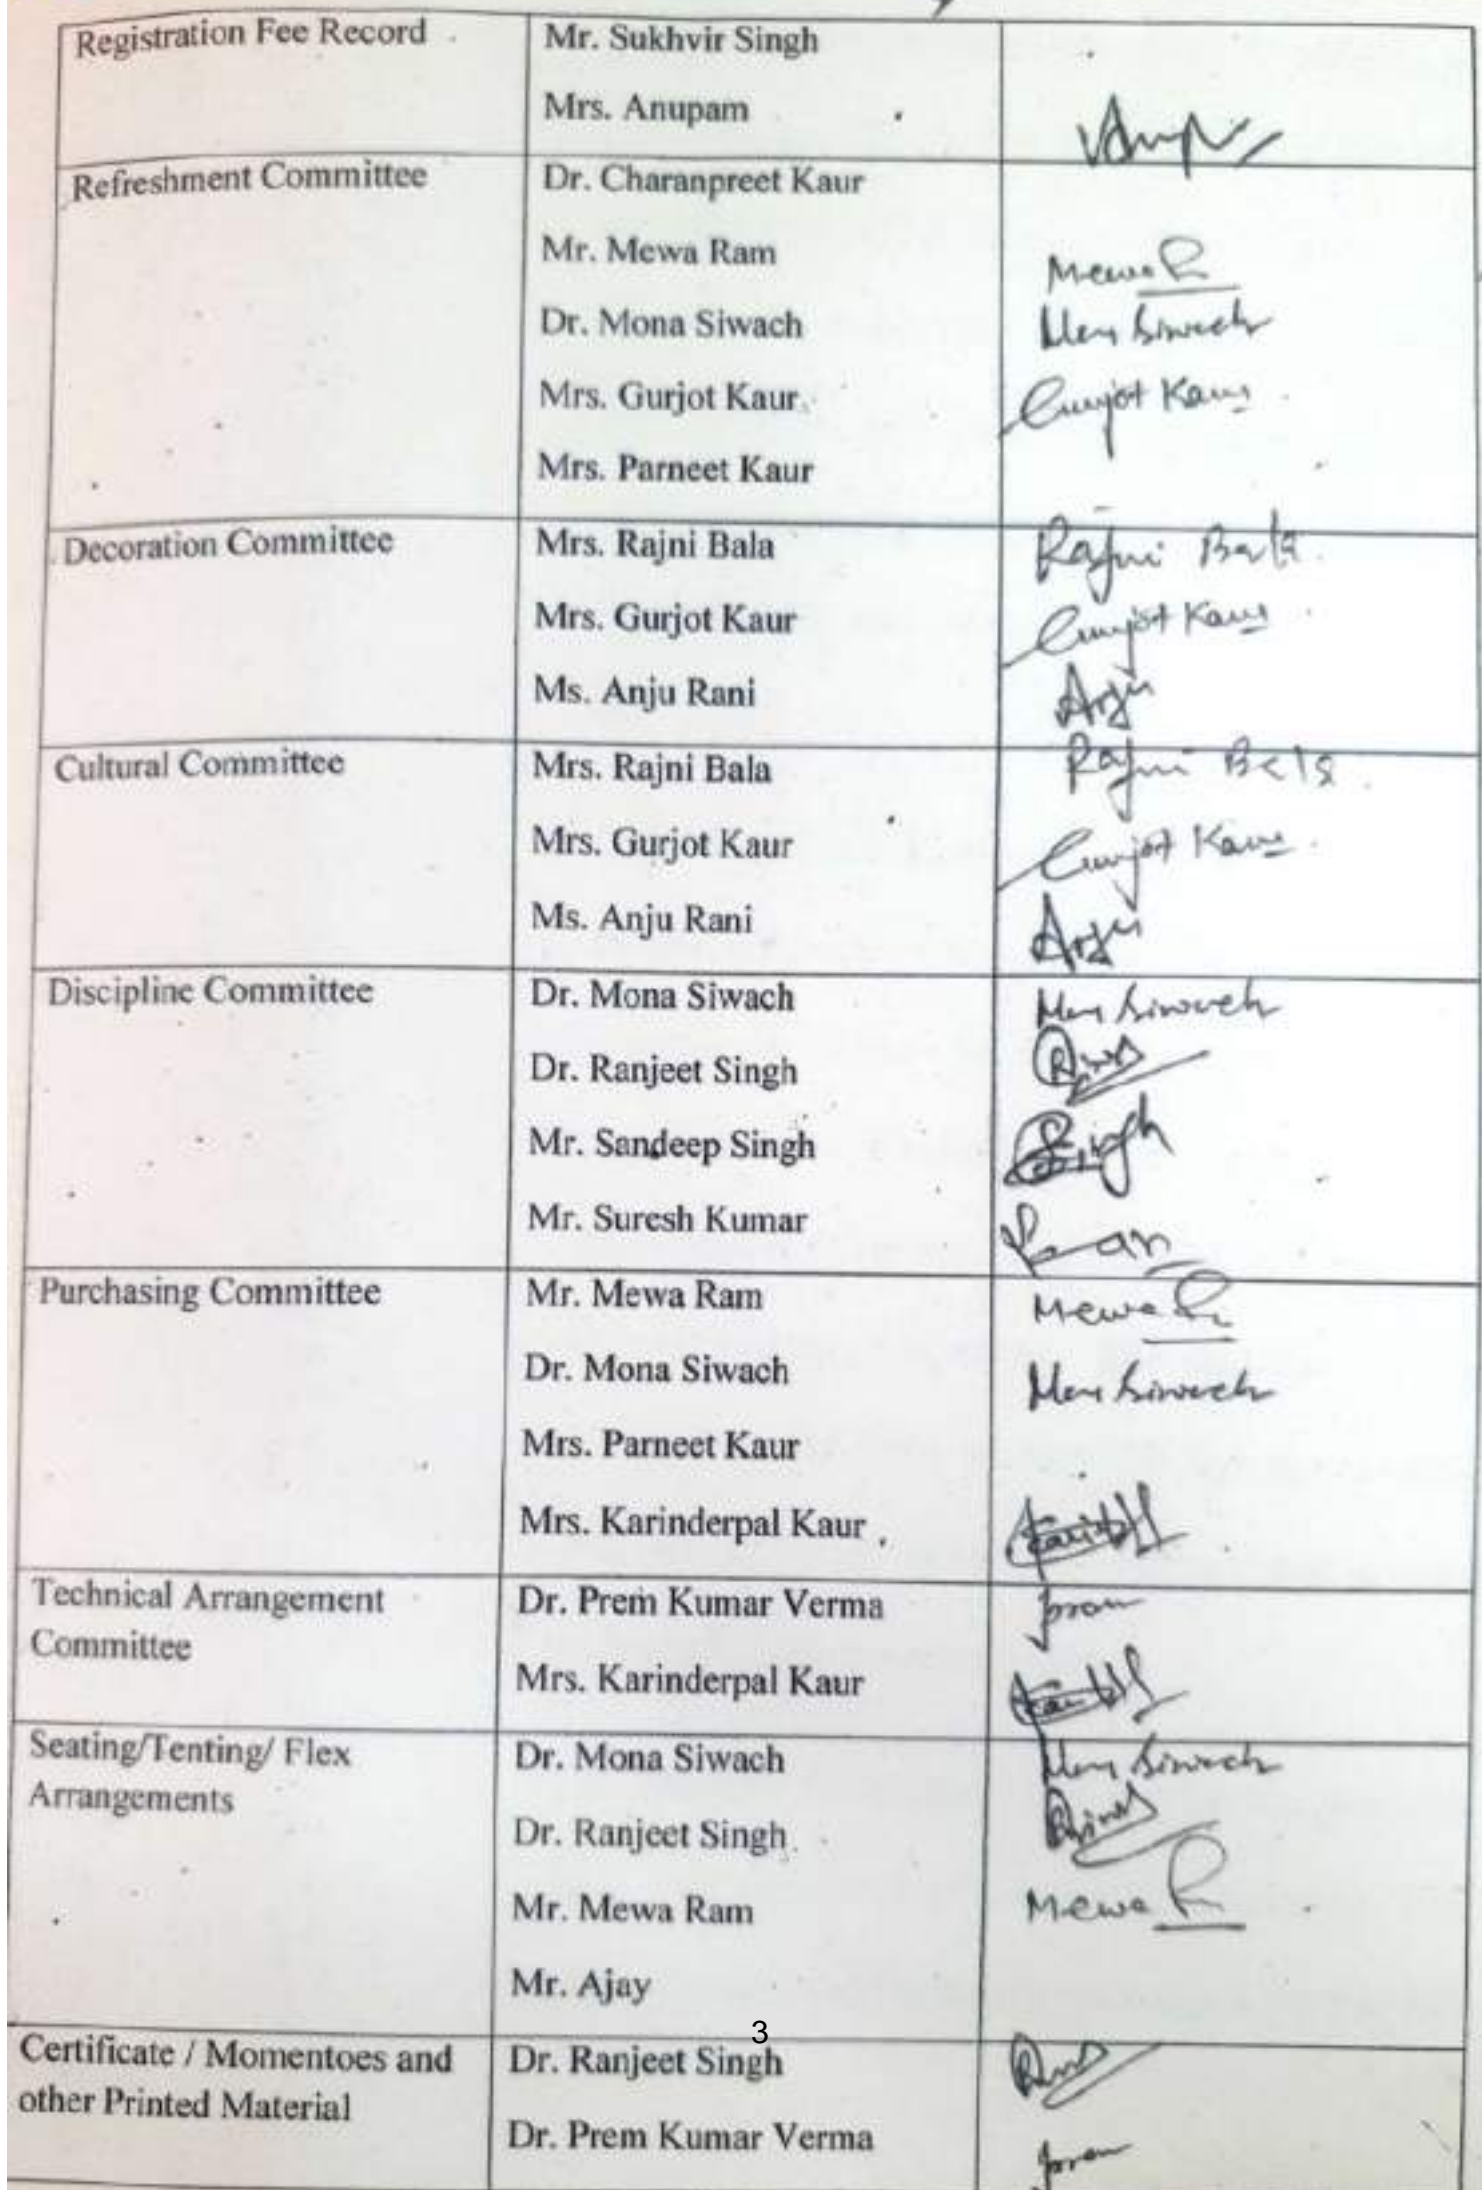 Registration Fee Record
Mr. Sukhvir Singh
Mrs. Anupam
Refreshment Committee
Dr. Charanpreet Kaur
Mr. Mewa Ram
Mewa R
Dr. Mona Siwach
Siwach
Mrs. Gurjot Kaur
Gurjot Kaur
Mrs. Parneet Kaur
Decoration Committee
Mrs. Rajni Bala
Rajni Bala
Mrs. Gurjot Kaur
Gurjot Kaur
Ms. Anju Rani
Anju
Cultural Committee
Mrs. Rajni Bala
Rajni Bala
Mrs. Gurjot Kaur
Gurjot Kaur
Ms. Anju Rani
Anju
Discipline Committee
Dr. Mona Siwach
Siwach
Dr. Ranjeet Singh
Mr. Sandeep Singh
Singh
Mr. Suresh Kumar
Purchasing Committee
Mr. Mewa Ram
Mewa R
Dr. Mona Siwach
Siwach
Mrs. Parneet Kaur
Mrs. Karinderpal Kaur
Technical Arrangement
Committee
Dr. Prem Kumar Verma
Prem
Mrs. Karinderpal Kaur
Seating/Tenting/ Flex
Arrangements
Dr. Mona Siwach
Siwach
Dr. Ranjeet Singh
Mr. Mewa Ram
Mewa R
Mr. Ajay
3
Certificate / Momentoes and
other Printed Material
Dr. Ranjeet Singh
Dr. Prem Kumar Verma
Prem